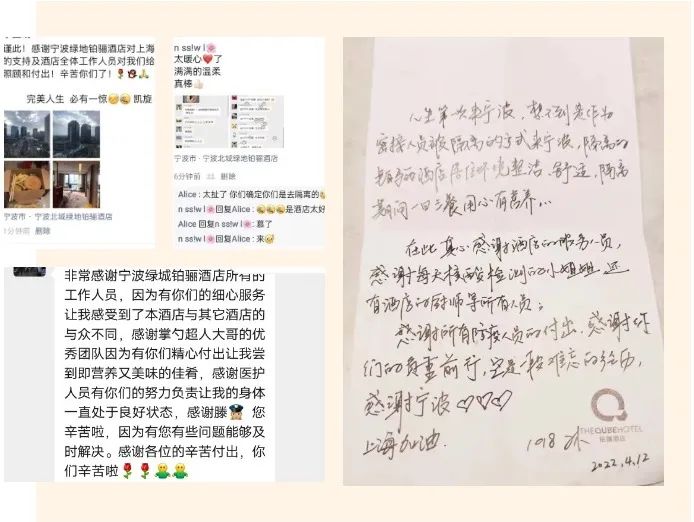 谨此！感谢宁波绿地铂骊酒店对上海
的支持及酒店全体工作人员对我们给
照顾和付出！辛苦你们了！🌹🙏
完美人生 必有一惊 凯旋
宁波市·宁波北城绿地铂骊酒店
1分钟前 删除
n ss!w l🌸
太暖心❤️了
满满的温柔
真棒👍🏻
宁波市·宁波北城绿地铂骊酒店
6分钟前 删除
Alice：太扯了 你们确定你们是去隔离的
n ss!w l🌸回复Alice：是酒店太好
Alice 回复n ss!w l🌸：慕了
n ss!w l🌸回复Alice：来
非常感谢宁波绿城铂骊酒店所有的
工作人员，因为有你们的细心服务
让我感受到了本酒店与其它酒店的
与众不同，感谢掌勺超人大哥的优
秀团队因为有你们精心付出让我尝
到即营养又美味的佳肴，感谢医护
人员有你们的努力负责让我的身体
一直处于良好状态，感谢滕👮 您
辛苦啦，因为有您有些问题能够及
时解决。感谢各位的辛苦付出，你
们辛苦啦🌹🌹
人生第一次来宁波，想不到是作为
密接人员被隔离的方式来宁波，隔离的
酒店居住环境整洁、舒适，隔离
期间一日三餐用心有营养…
在此真心感谢酒店的服务人员，
感谢每天核酸检测的小姐姐，还
有酒店的厨师等所有人员；
感谢所有防疫人员的付出，感谢你
们的负重前行，空是段难忘的经历，
感谢宁波♡♡♡
上海加油
1098
THE QUBE HOTEL
铂骊酒店
2022.4.12